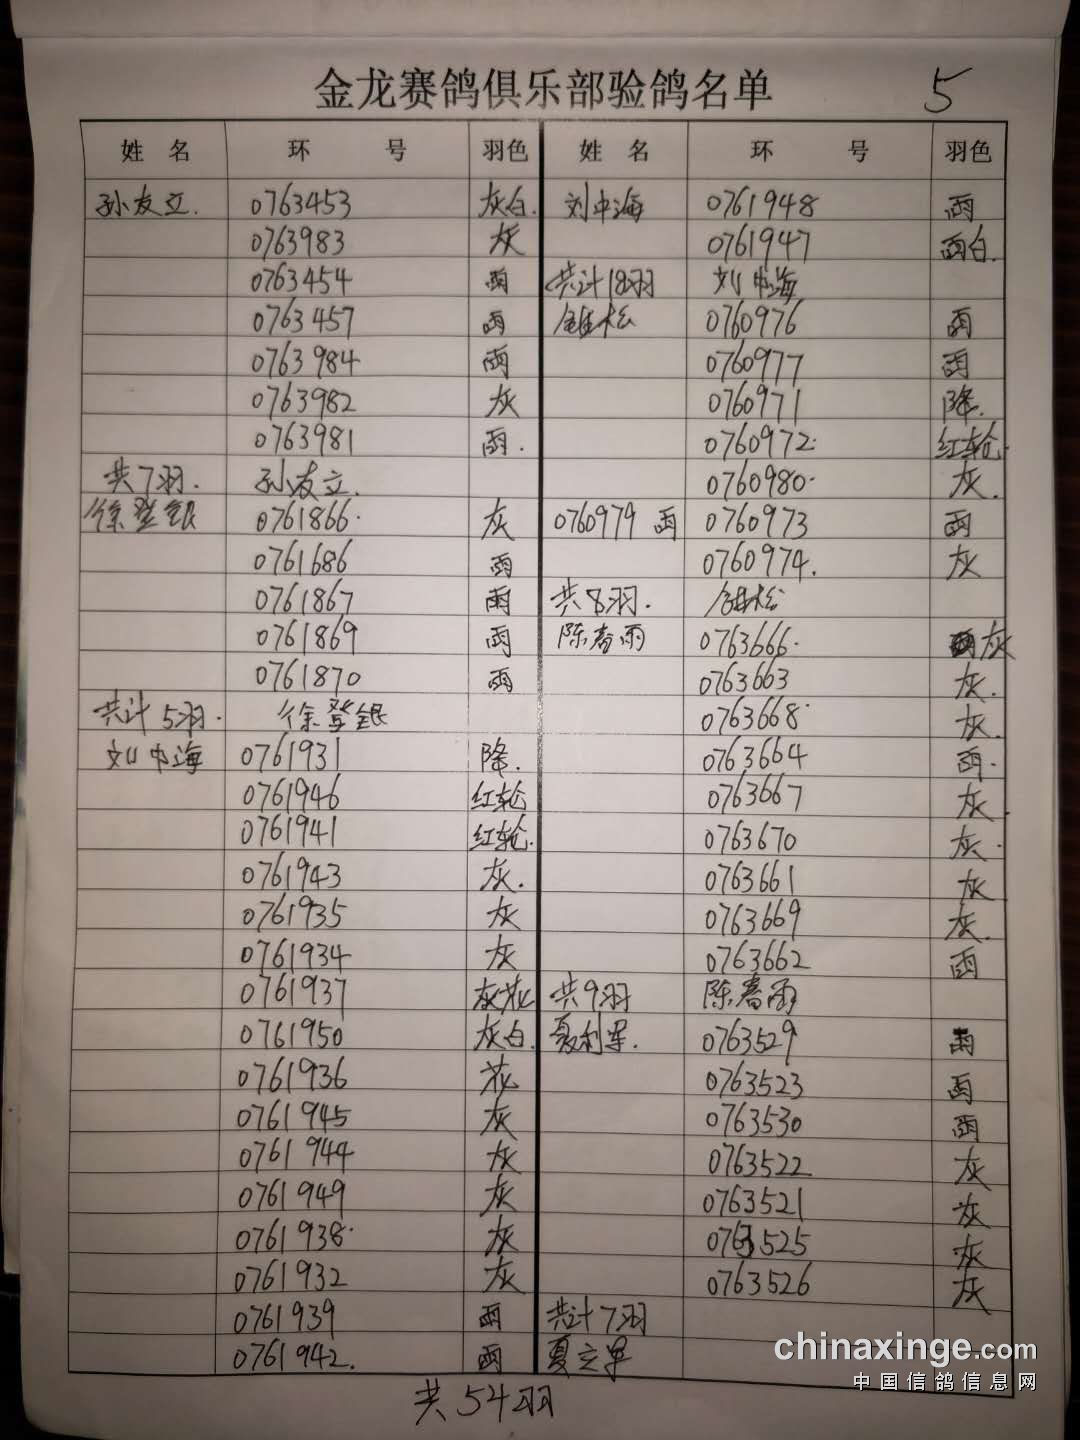 金龙赛鸽俱乐部验鸽名单 5
姓 名 环 号 羽色 姓 名 环 号 羽色
孙友立. 0763453 灰白. 刘中海 0761948 雨
0763983 灰 0761947 雨白.
0763454 雨 共计18羽 刘中海
0763457 雨 松 0760976 雨
0763984 雨 0760977 雨
0763982 灰 0760971 降.
0763981 雨. 0760972. 红轮.
共7羽. 孙友立. 0760980. 灰.
徐登银 0761866. 灰 0760979 雨 0760973 雨
0761686 雨 0760974. 灰
0761867 雨 共8羽. 松
0761869 雨 陈春雨 0763666. 灰
0761870 雨 0763663 灰.
共计5羽. 徐登银 0763668. 灰.
刘中海 0761931 降. 0763664 雨.
0761946 红轮 0763667 灰.
0761941 红轮. 0763670 灰.
0761943 灰. 0763661 灰
0761935 灰 0763669 灰.
0761934 灰 0763662 雨
0761937 灰花 共9羽 陈春雨
0761950 灰白. 夏利军. 0763529 雨
0761936 花 0763523 雨
0761945 灰 0763530 雨
0761944 灰 0763522 灰
0761949 灰 0763521 灰
0761938. 灰 0763525 灰
0761932 灰 0763526 灰
0761939 雨 共计7羽
0761942. 雨 夏立军
共54羽
chinaxinge.com
中国信鸽信息网